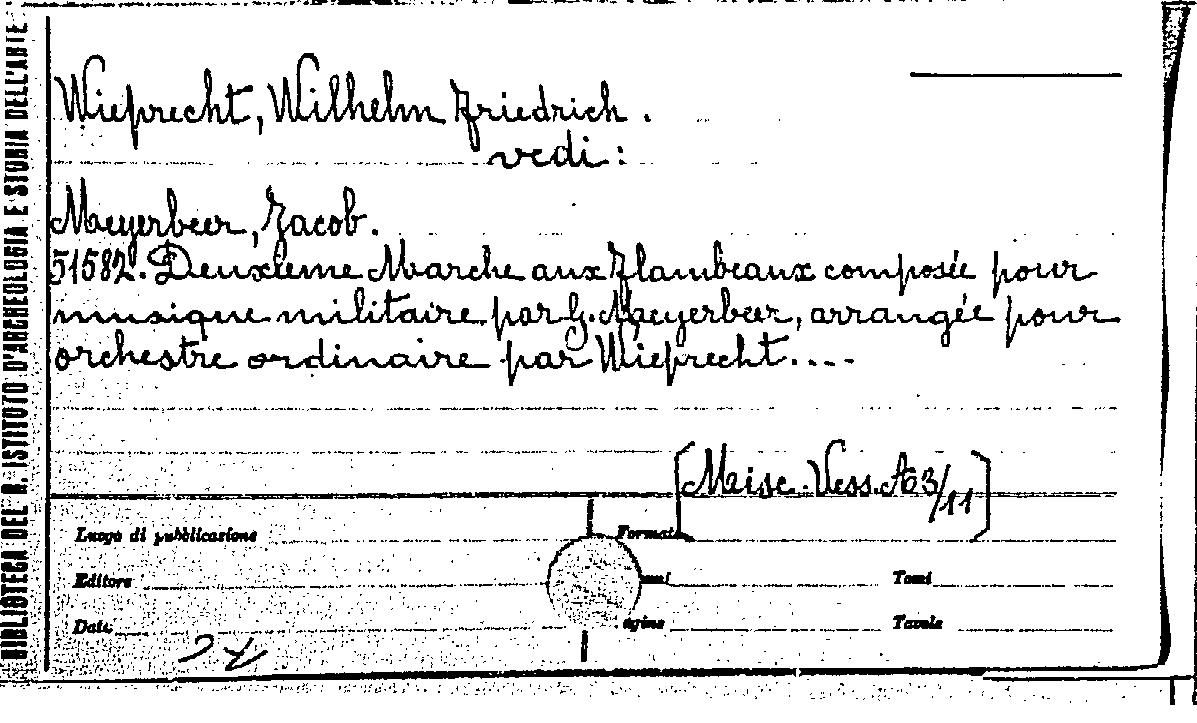 BIBLIOTECA DEL R. ISTITUTO D'ARCHEOLOGIA E STORIA DELL'ARTE
Wieprecht, Wilhelm Friedrich.
vedi:
Meyerbeer, Jacob.
51582. Deuxième Marche aux Flambeaux composée pour
musique militaire par G. Meyerbeer, arrangée pour
orchestre ordinaire par Wieprecht....
[Misc. Vess. A 3/11]
Luogo di pubblicazione
Formato
Editore
Tomi
Data
Tavole